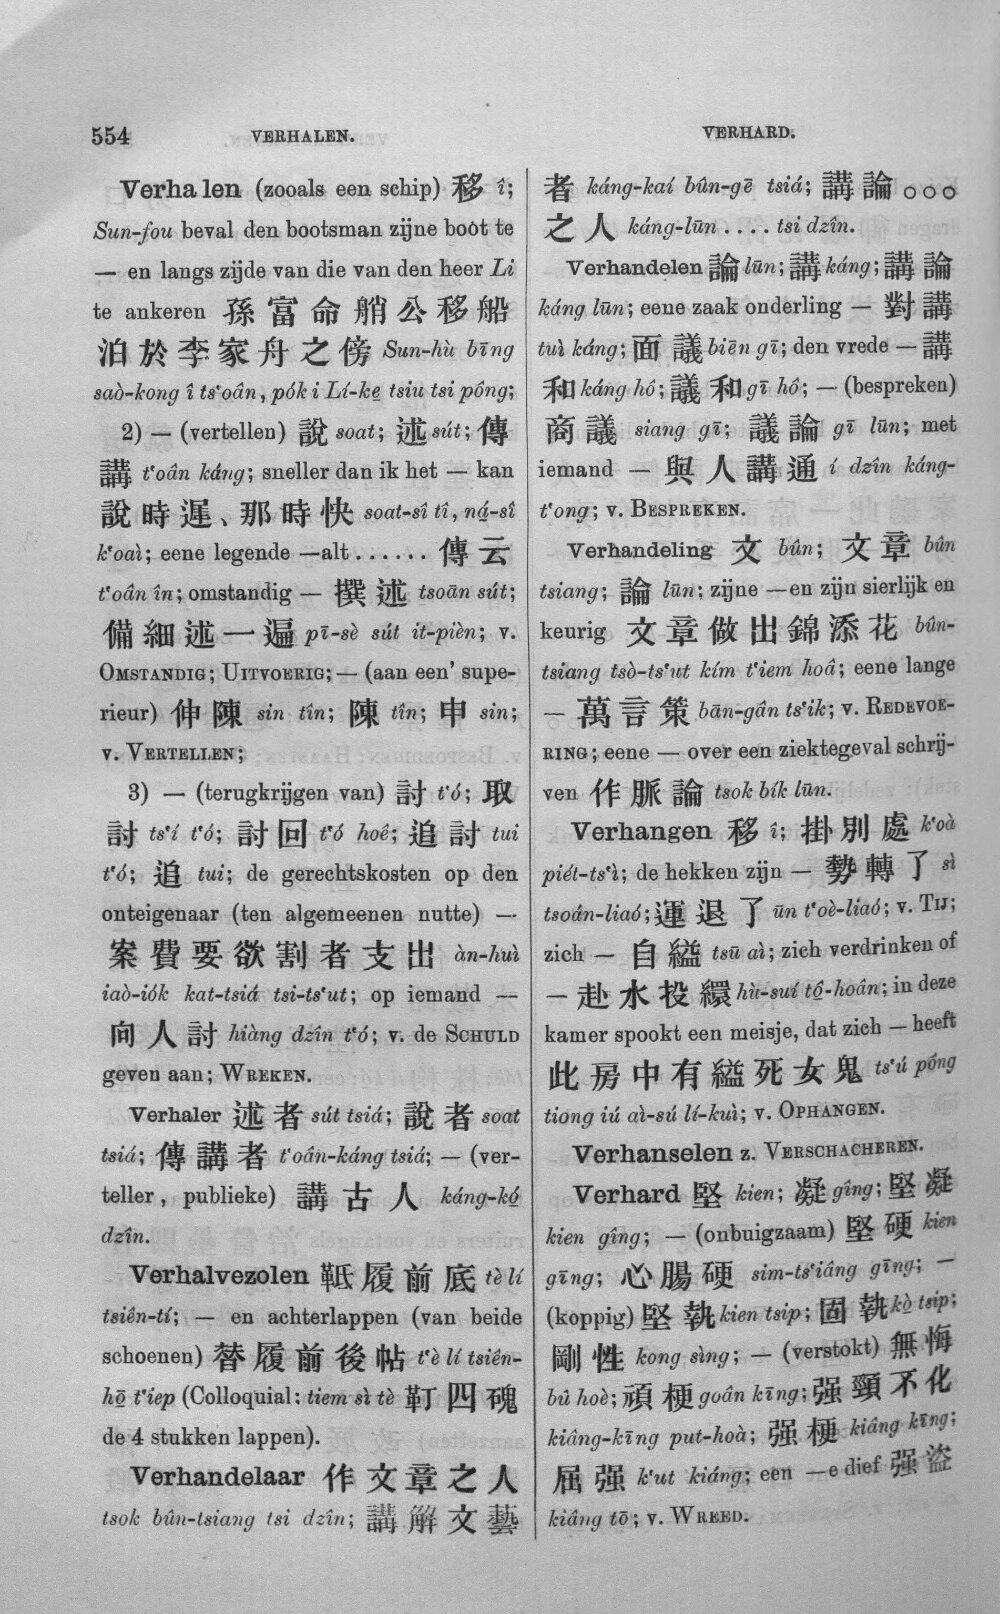 554 VERHALEN. VERHARD.
Verhalen (zooals een schip) 移 î;
Sun-fou beval den bootsman zijne boot te
— en langs zijde van die van den heer Li
te ankeren 孫富命艄公移船
泊於李家舟之傍 Sun-hù bīng
saò-kong î ts‘oân, pók i Lí-ke̱ tsiu tsi pông;
2) — (vertellen) 說 soat; 述 sút; 傳
講 t‘oân káng; sneller dan ik het — kan
說時遲、那時快 soat-sî tî, ná̱-sî
k‘oaì; eene legende —alt...... 傳云
t‘oân în; omstandig — 撰述 tsoān sút;
備細述一遍 pī-sè sút it-pièn; v.
OMSTANDIG; UITVOERIG; — (aan een' supe-
rieur) 伸陳 sin tîn; 陳 tîn; 申 sin;
v. VERTELLEN;
3) — (terugkrijgen van) 討 t‘ó; 取
討 ts‘í t‘ó; 討回 t‘ó hoê; 追討 tui
t‘ó; 追 tui; de gerechtskosten op den
onteigenaar (ten algemeenen nutte) —
案費要欲割者支出 àn-huì
iaò-iók kat-tsiá tsi-ts‘ut; op iemand —
向人討 hiàng dzîn t‘ó; v. de SCHULD
geven aan; WREKEN.
Verhaler 述者 sút tsiá; 說者 soat
tsiá; 傳講者 t‘oân-káng tsiá; — (ver-
teller, publieke) 講古人 káng-kó̱
dzîn.
Verhalvezolen 鞋履前底 tè lí
tsiên-tí; — en achterlappen (van beide
schoenen) 替履前後帖 t‘è lí tsiên-
hō̱ t‘iep (Colloquial: tiem sì tè 靪四磈
de 4 stukken lappen).
Verhandelaar 作文章之人
tsok bûn-tsiang tsi dzîn; 講解文藝
者 káng-kaí bûn-gē tsiá; 講論○○○
之人 káng-lūn .... tsi dzîn.
Verhandelen 論 lūn; 講 káng; 講論
káng lūn; eene zaak onderling — 對講
tuì káng; 面議 biēn gī; den vrede — 講
和 káng hô; 議和 gī hô; — (bespreken)
商議 siang gī; 議論 gī lūn; met
iemand — 與人講通 í dzîn káng-
t‘ong; v. BESPREKEN.
Verhandeling 文 bûn; 文章 bûn
tsiang; 論 lūn; zijne —en zijn sierlijk en
keurig 文章做出錦添花 bûn-
tsiang tsò-ts‘ut kím t‘iem hoâ; eene lange
— 萬言策 bān-gân ts‘ik; v. REDEVOE-
RING; eene — over een ziektegeval schrij-
ven 作脈論 tsok bík lūn.
Verhangen 移 î; 掛別處 k‘oà
piét-ts‘ì; de hekken zijn — 勢轉了 sì
tsoán-liaó; 運退了 ūn t‘oè-liaó; v. TIJ;
zich — 自縊 tsū aì; zich verdrinken of
— 赴水投繯 hù-suí tô̱-hoân; in deze
kamer spookt een meisje, dat zich — heeft
此房中有縊死女鬼 ts‘ú pông
tiong iú aì-sú lí-kuì; v. OPHANGEN.
Verhanselen z. VERSCHACHEREN.
Verhard 堅 kien; 凝 gîng; 堅凝
kien gîng; — (onbuigzaam) 堅硬 kien
gīng; 心腸硬 sim-ts‘iâng gīng; —
(koppig) 堅執 kien tsip; 固執 kò̱ tsip;
剛性 kong sìng; — (verstokt) 無悔
bû hoè; 頑梗 goân kīng; 强頸不化
kiâng-kīng put-hoà; 强梗 kiâng kīng;
屈强 k‘ut kiáng; een —e dief 强盜
kiâng tō; v. WREED.